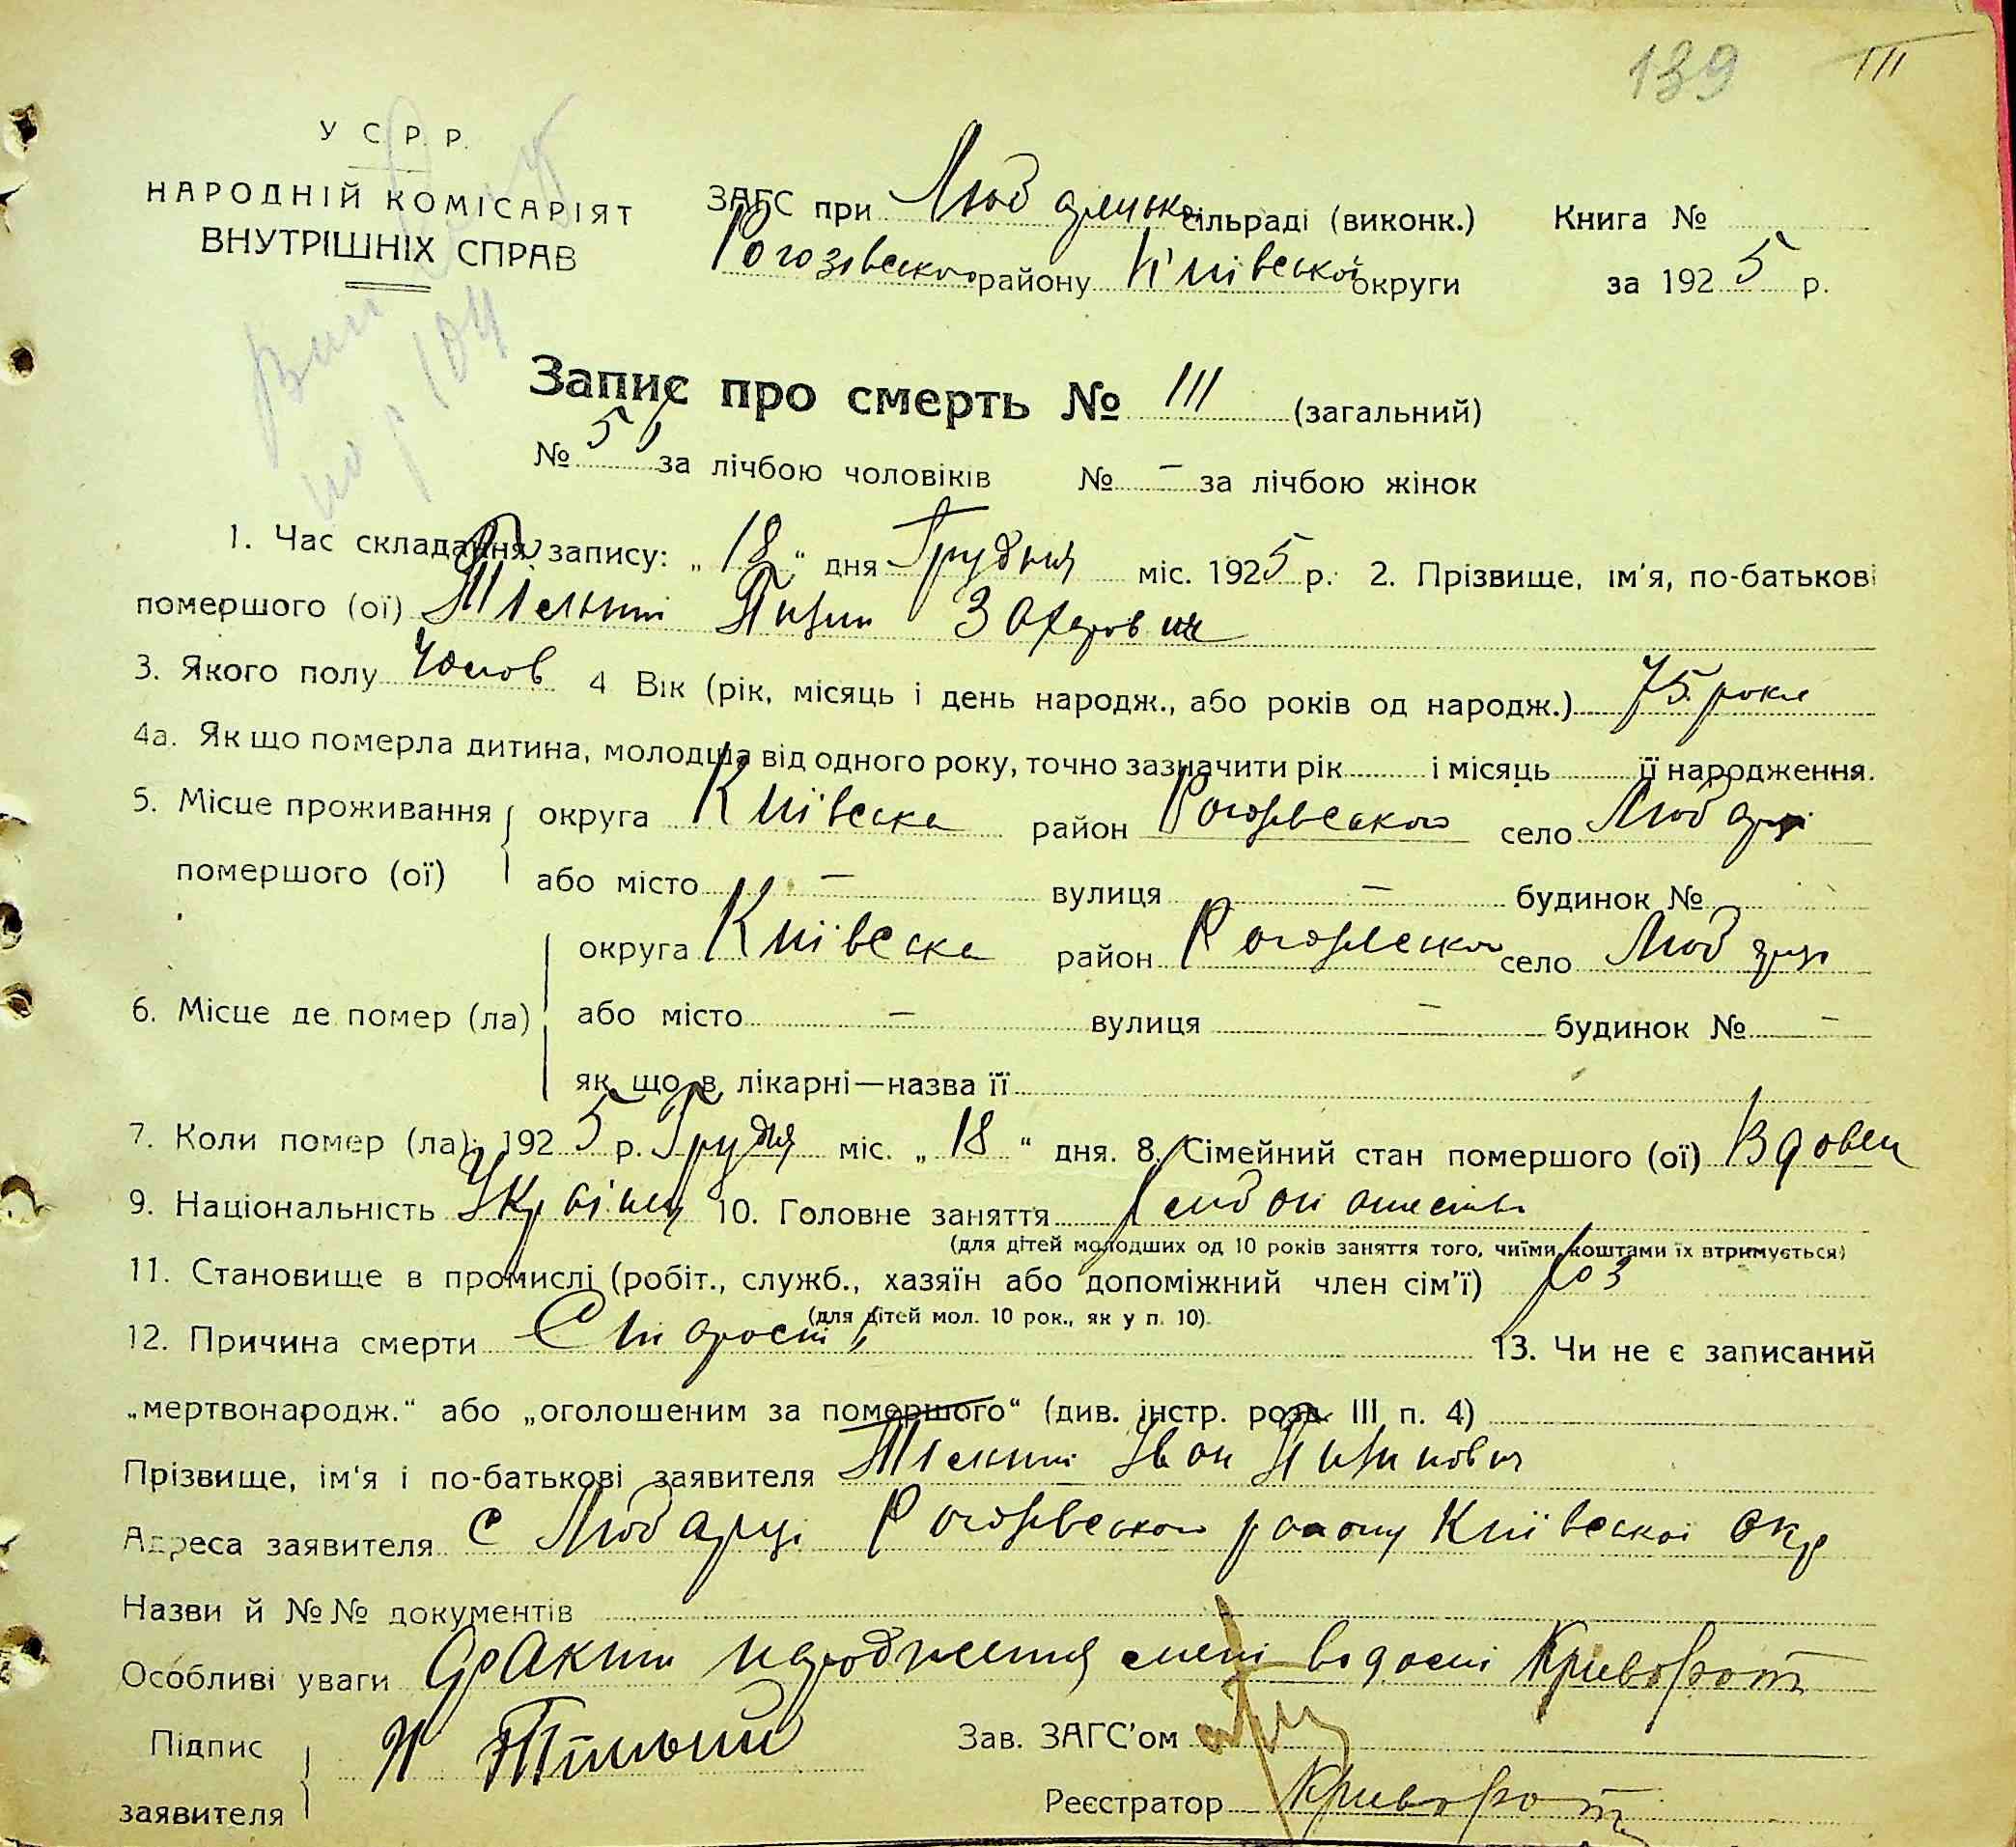 139 111
У С Р. Р.
НАРОДНІЙ КОМІСАРІЯТ
ВНУТРІШНІХ СПРАВ
ЗАГС при Любарцько сільраді (виконк.) Книга №
Рогозівсько району Київської округи за 1925 р.
104
Запис про смерть № 111 (загальний)
№ за лічбою чоловіків № – за лічбою жінок
1. Час складання запису: „18“ дня Грудня міс. 1925 р. 2. Прізвище, ім'я, по-батькові
помершого (ої) Захарович
3. Якого полу Чолов 4 Вік (рік, місяць і день народж., або років од народж.) 75 роки
4а. Як що померла дитина, молодша від одного року, точно зазначити рік і місяць її народження.
5. Місце проживання округа Київеска район Рогозівського село Любарці
помершого (ої) або місто – вулиця – будинок №
округа Київеска район село Любарці
6. Місце де помер (ла) або місто – вулиця – будинок № –
як що в лікарні—назва її
7. Коли помер (ла): 1925 р. Грудня міс. „18“ дня. 8. Сімейний стан помершого (ої) Вдовец
9. Національність Українц 10. Головне заняття
(для дітей молодших од 10 років заняття того, чиїми коштами їх втримується)
11. Становище в промислі (робіт., служб., хазяїн або допоміжний член сім'ї)
(для дітей мол. 10 рок., як у п. 10).
12. Причина смерти Старость 13. Чи не є записаний
„мертвонародж.“ або „оголошеним за помершого“ (див. інстр. розд. III п. 4)
Прізвище, ім'я і по-батькові заявителя Іван
Адреса заявителя с Любарці Київескоі окр
Назви й №№ документів
Особливі уваги народження Кривобот
Підпис Зав. ЗАГС'ом
заявителя
Реєстратор